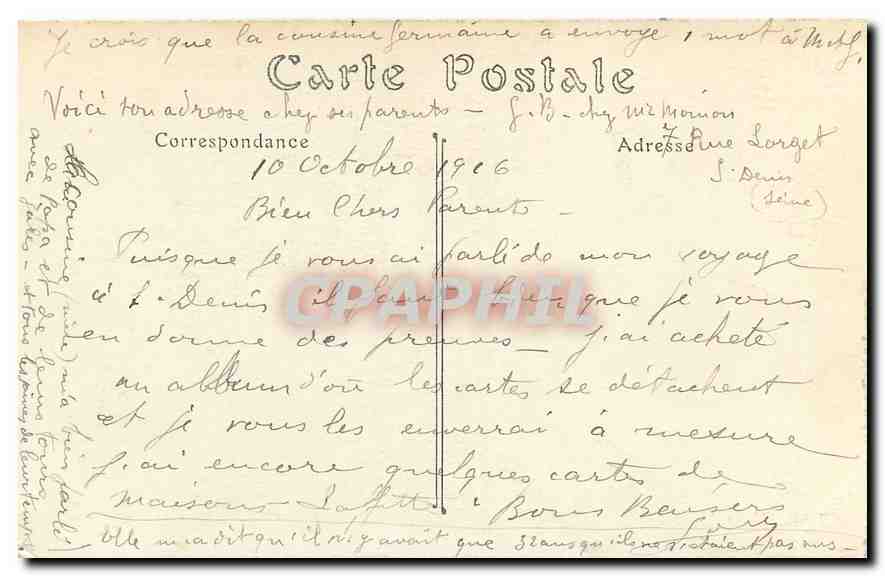 Je crois que la cousine germaine a envoyé 1 mot à
Carte Postale
Voici son adresse chez ses parents – G. B. chez Mr Moinon
Correspondance
Adresse 7 Rue Lorget
S. Denis
(Seine)
10 Octobre 1916
Bien Chers Parents –
Puisque je vous ai parlé de mon voyage
à S. Denis il faut bien que je vous
en donne des preuves – j'ai acheté
un album d'où les cartes se détachent
et je vous les enverrai à mesure
J'ai encore quelques cartes de
maisons Laffitte. Bons Baisers
CPAPHIL
La Cousine (mère) m'a bien parlé
de papa et de leurs tours
avec Jules – et tous les
Elle m'a dit qu'il n'y avait que 32 ans qu'ils ne s'étaient pas vus –